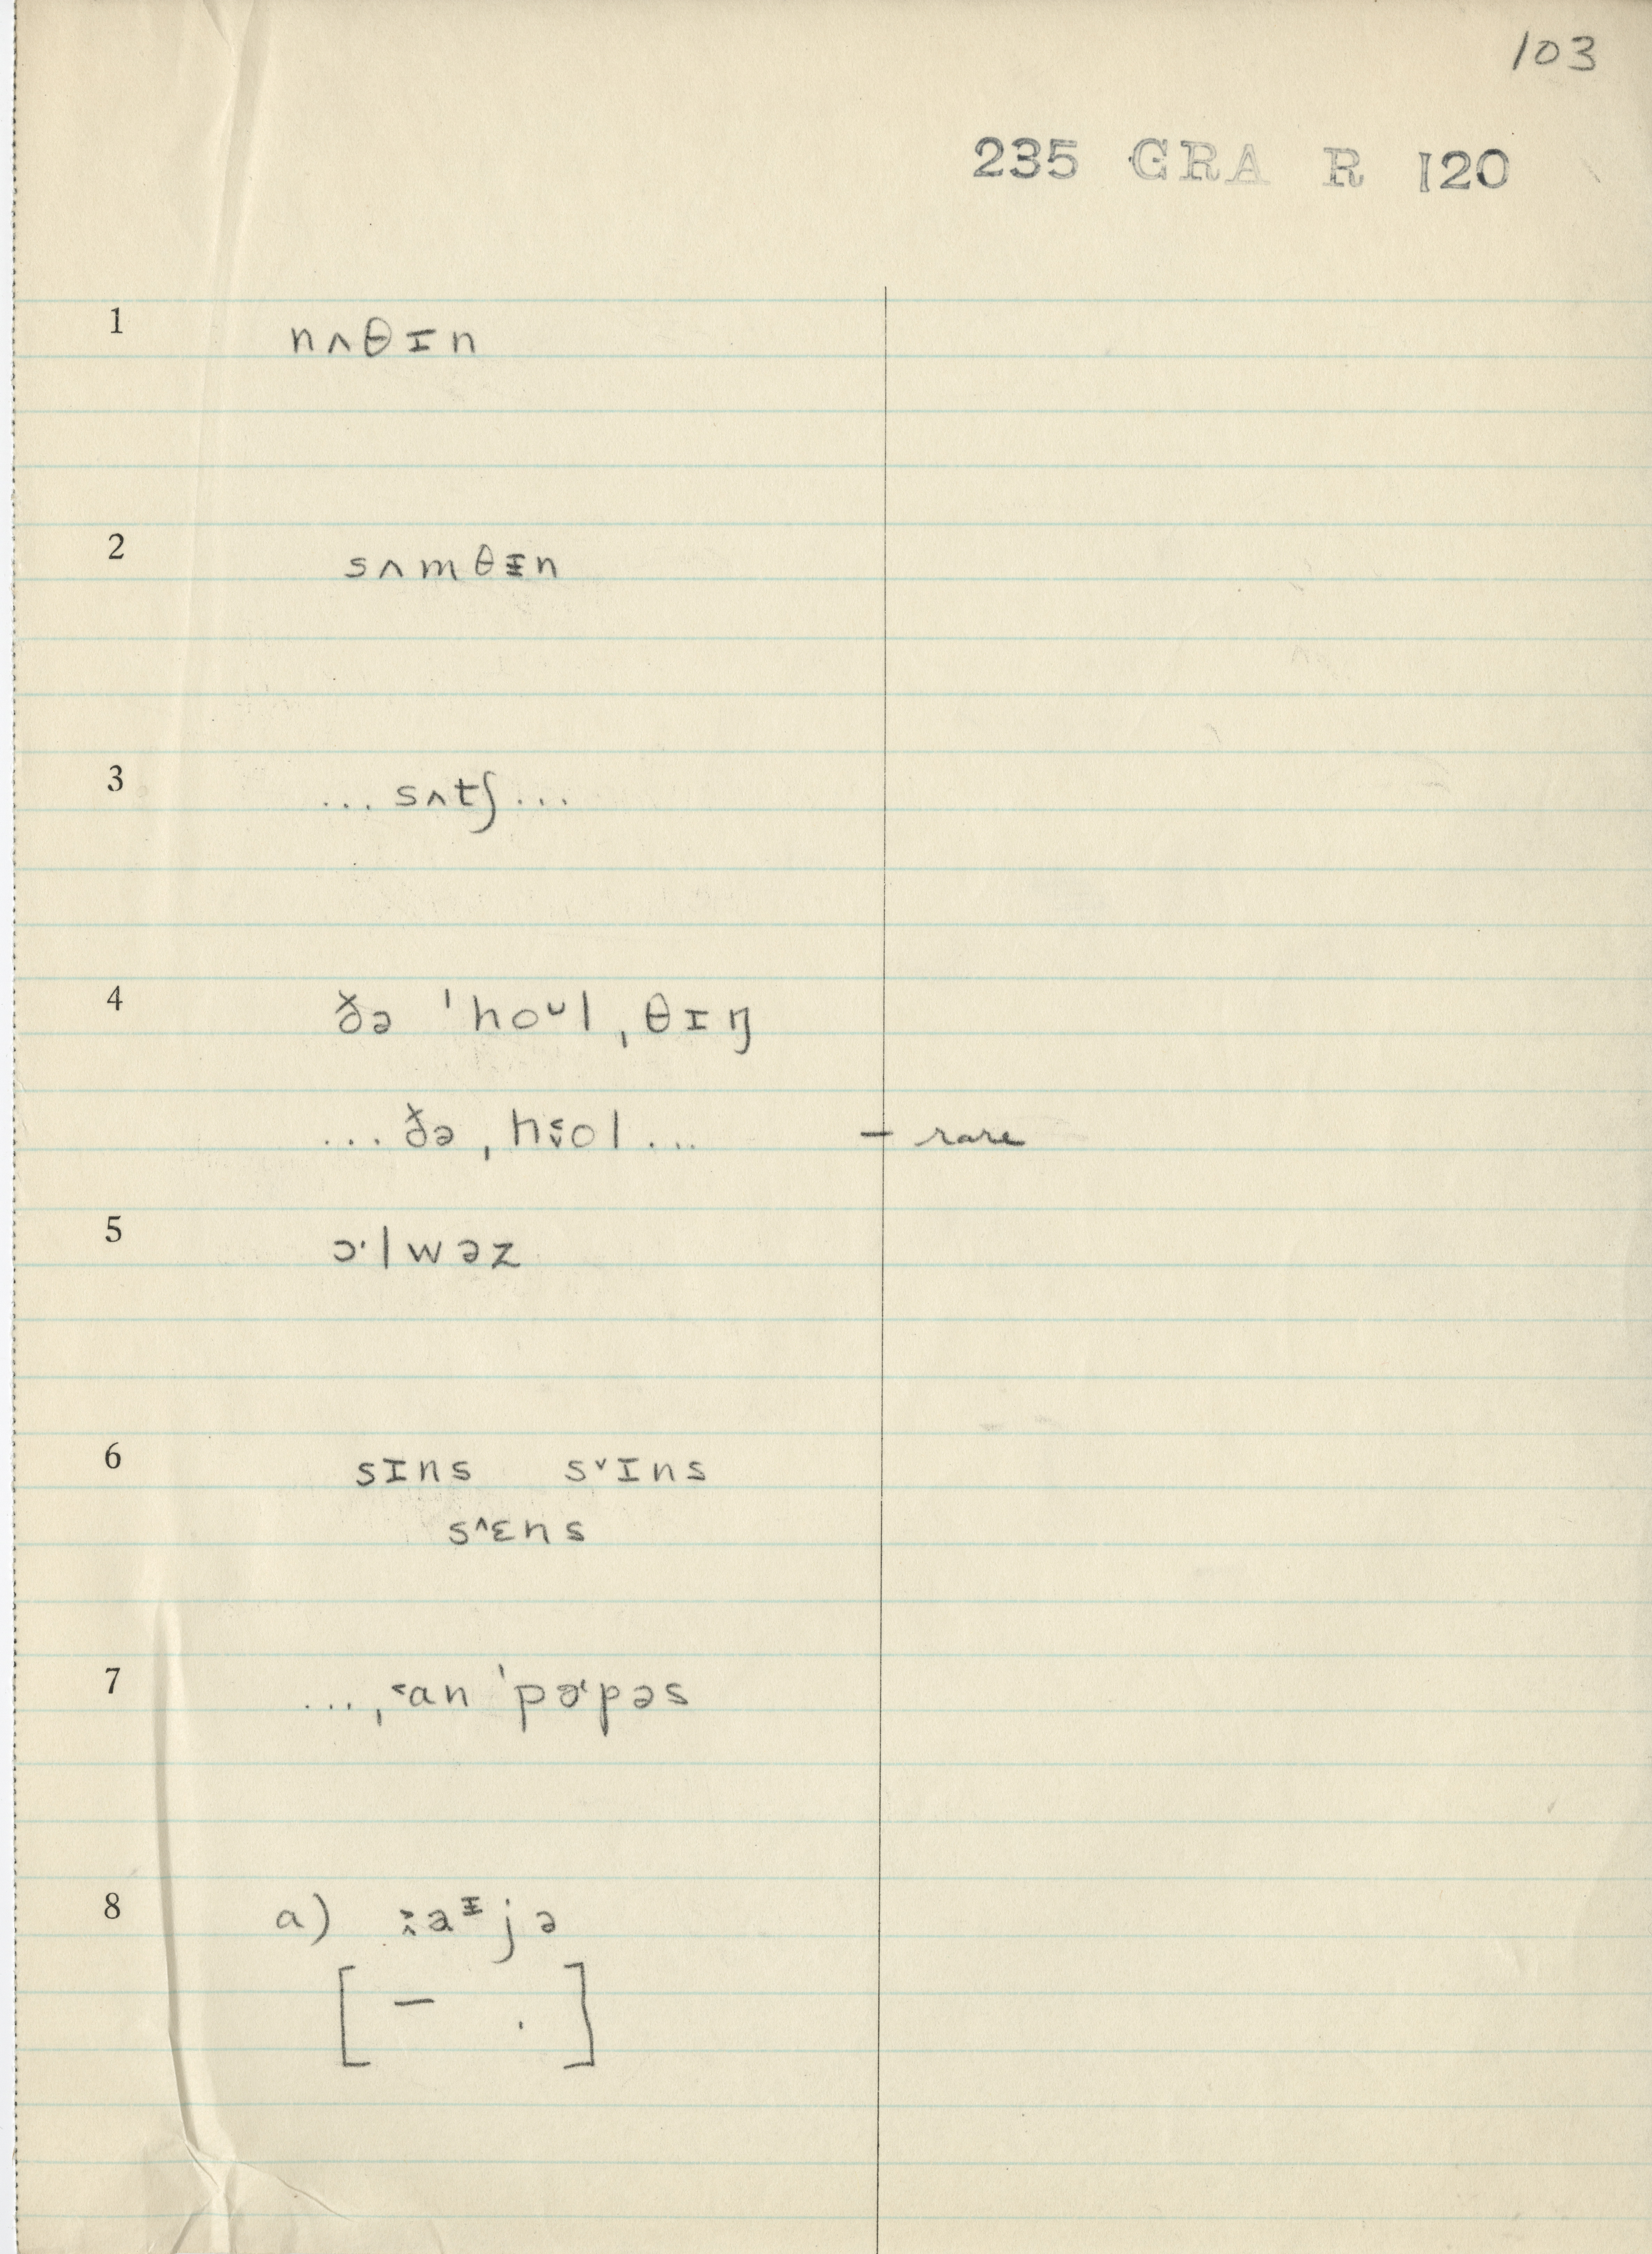 103
235 GRA R 120
1 nʌθɪn
2 sʌmθᵻn
3 ... sʌtʃ ...
4 ðə ˈhoᴗl ˌθɪŋ
... ðə ˌh˂˅ol ... — rare
5 ɔ·lwəz
6 sɪns s˅ɪns
s˄ɛns
7 ... ˌ˂an ˈpɚpəs
8 a) ˃˄aᵻjə
[ – . ]